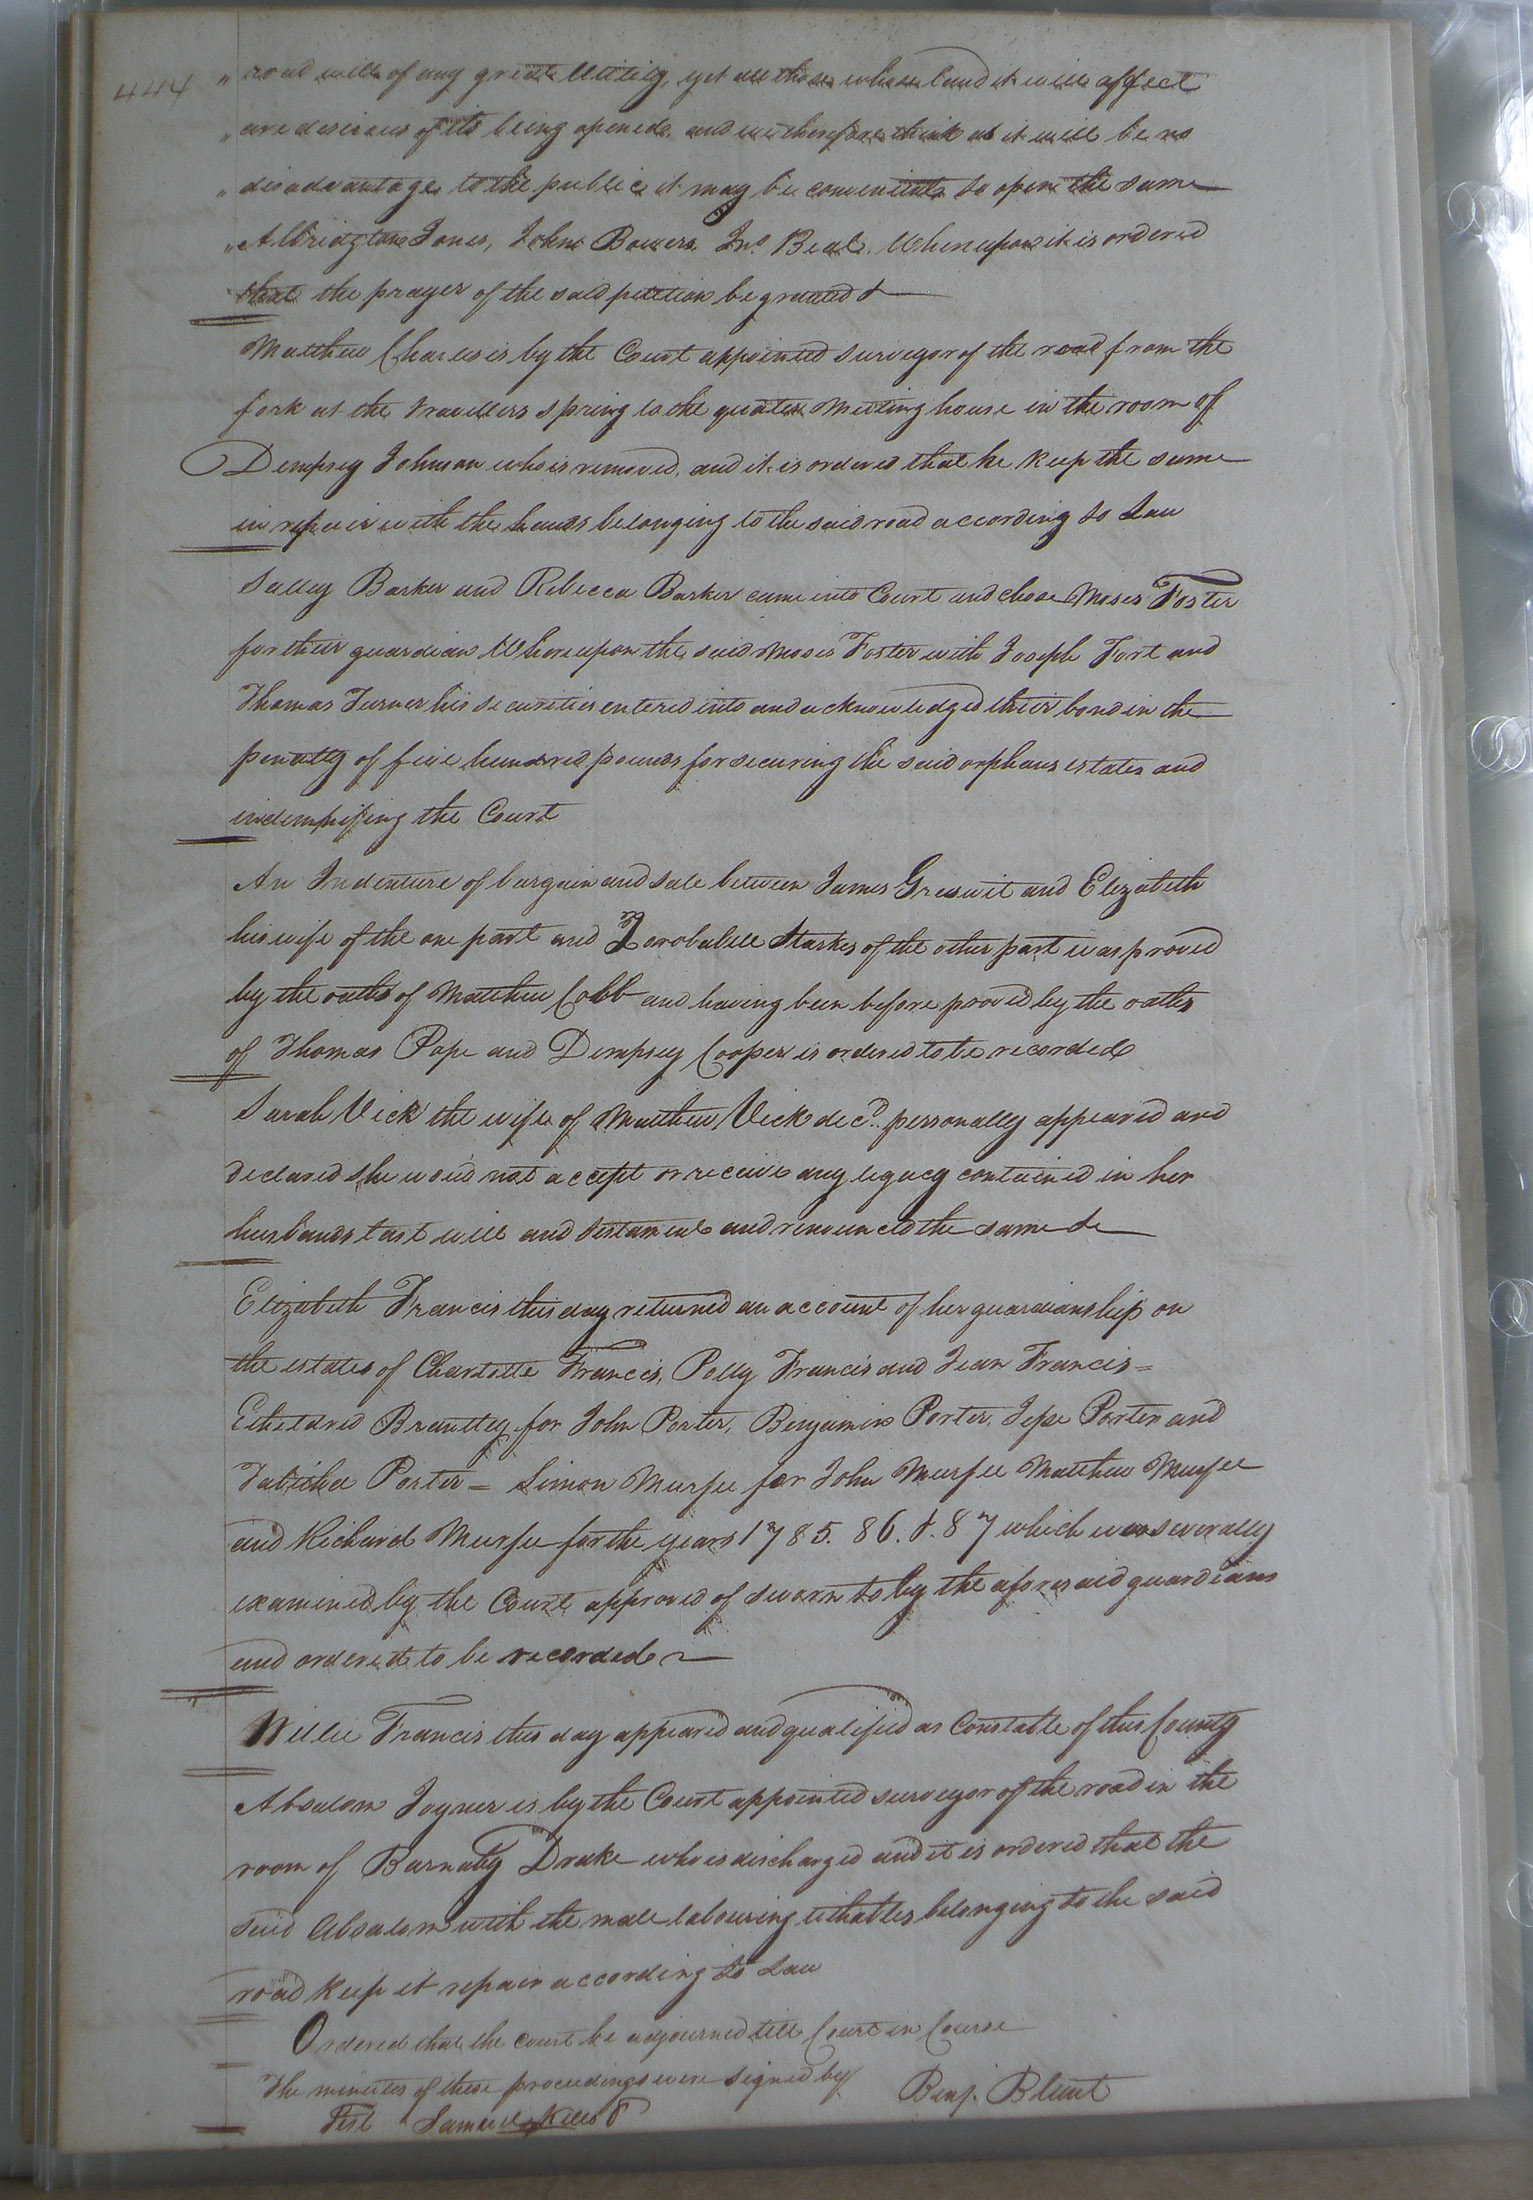 444
" road will of any great Utility, yet all those whose land it will affect
" are desirous of its being opened, and we therefore think as it will be no
" disadvantage to the public it may be convenient to open the same
" Albridgton Jones, John Bowers, Jno. Beal. Whereupon it is ordered
that the prayer of the said petition be granted &
Matthew Charles is by the Court appointed surveyor of the road from the
fork at the travellers spring to the quaker Meeting house in the room of
Dempsey Johnson who is removed, and it is ordered that he keep the same
in repair with the hands belonging to the said road according to Law
Salley Barker and Rebecca Barker came into Court and chose Moses Foster
for their guardian Whereupon the said Moses Foster with Joseph Fort and
Thomas Turner his securities entered into and acknowledged their bond in the
penalty of five hundred pounds for securing the said orphans estates and
indempifing the Court
An Indenture of bargain and sale between James Greswit and Elizabeth
his wife of the one part and Zerobabell Starkes of the other part was proved
by the oaths of Matthew Cobb and having been before proved by the oaths
of Thomas Pope and Dempsey Cooper is ordered to be recorded
Sarah Vick the wife of Matthew Vick decd. personally appeared and
declared she woud not accept or receive any legacy contained in her
husbands last will and testament and renounced the same &
Elizabeth Francis this day returned an account of her guardianship on
the estates of Charlotte Francis, Polly Francis and Jean Francis =
Etheldred Brantley for John Porter, Benjamin Porter, Jesse Porter and
Tabitha Porter = Simon Murfee for John Murfee Matthew Murfee
and Richard Murfee for the years 1785. 86. & 87 which was severally
examined by the Court approved of sworn to by the aforesaid guardians
and ordered to be recorded
Willie Francis this day appeared and qualified as Constable of this County
Absalom Joyner is by the Court appointed surveyor of the road in the
room of Barnaby Drake who is discharged and it is ordered that the
said Absalom with the male labouring tithables belonging to the said
road keep it repair according to Law
Ordered that the court be adjourned till Court in Course
The minutes of these proceedings were signed by Benj. Blunt
Test Samuel Kello